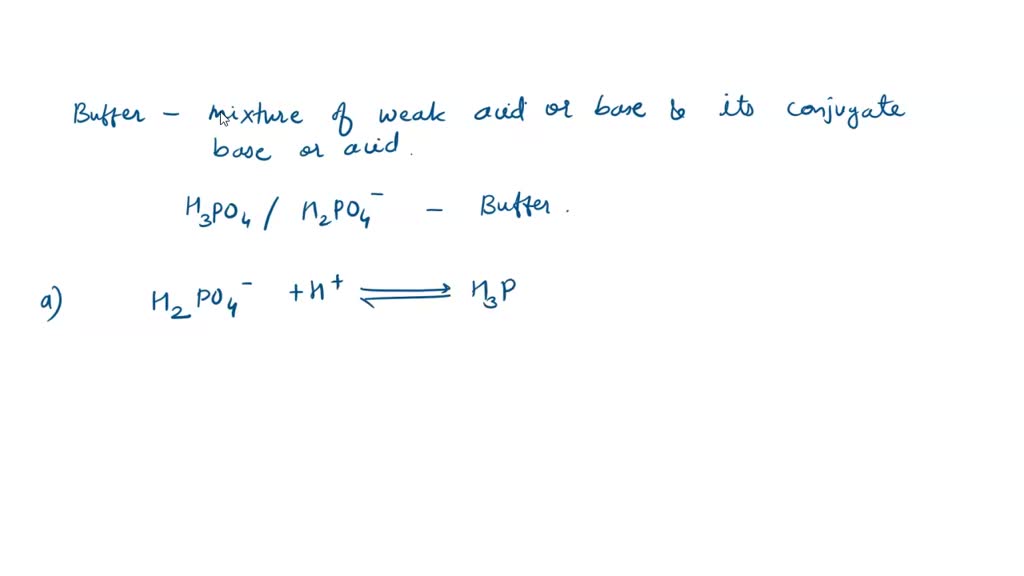 Buffer – mixture of weak acid or base & its conjugate
base or acid.
H₃PO₄ / H₂PO₄⁻ – Buffer.
a) H₂PO₄⁻ + H⁺ ⇌ H₃P